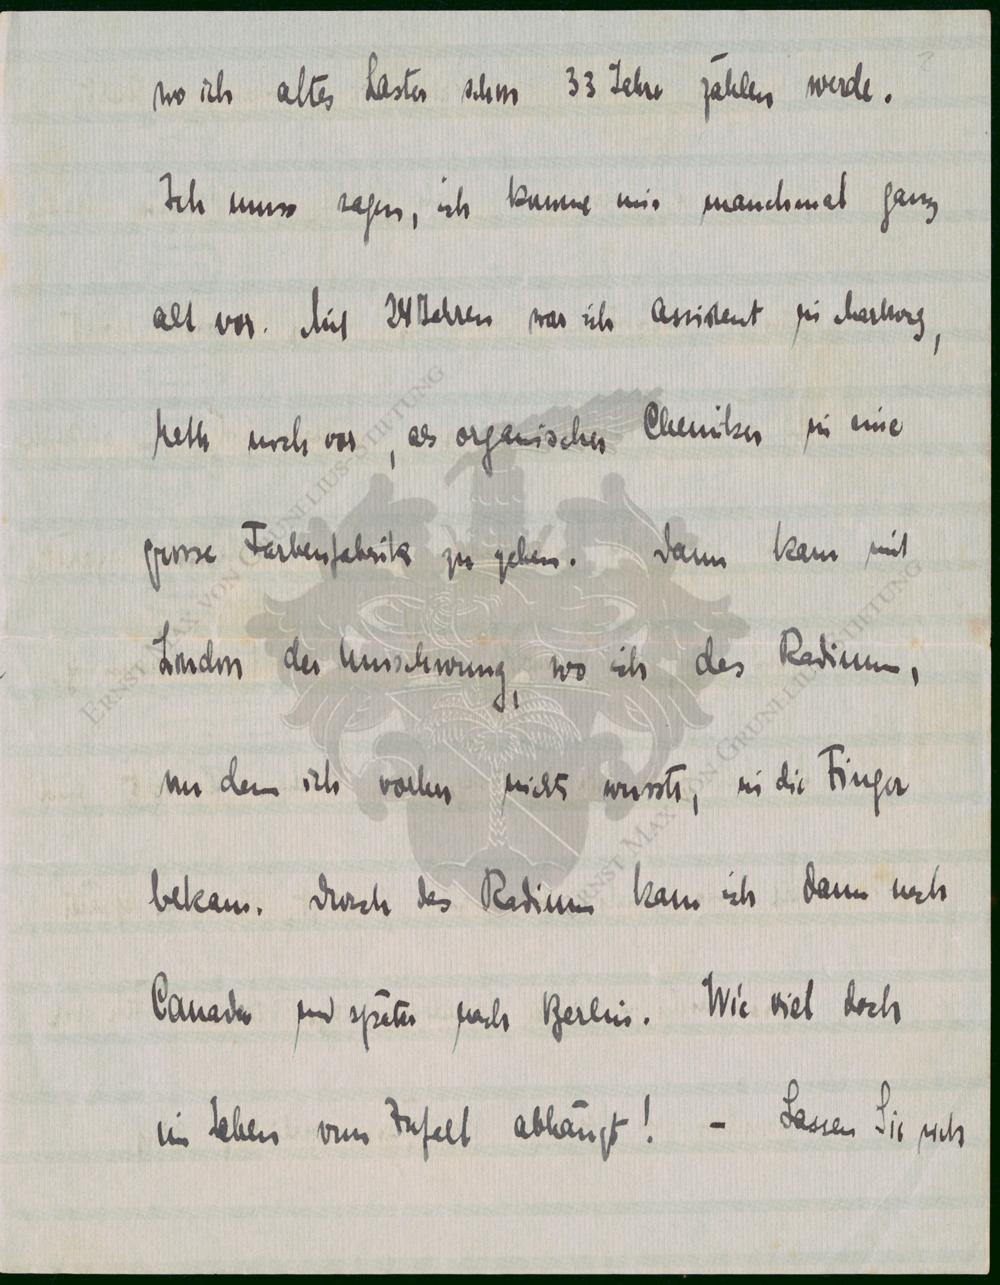 wo ich altes Laster schon 33 Jahre zählen werde.
Ich muss sagen, ich komme mir manchmal ganz
alt vor. Mit 24 Jahren war ich Assistent in Marburg,
hatte noch vor, als organischer Chemiker in eine
grosse Farbenfabrik zu gehen. Dann kam mit
London der Umschwung, wo ich das Radium,
von dem ich vorher nichts wusste, in die Finger
bekam. Durch das Radium kam ich dann nach
Canada und später nach Berlin. Wie viel doch
im Leben vom Zufall abhängt! – Lassen Sie sich
ERNST MAX VON GRUNELIUS-STIFTUNG
ERNST MAX VON GRUNELIUS-STIFTUNG